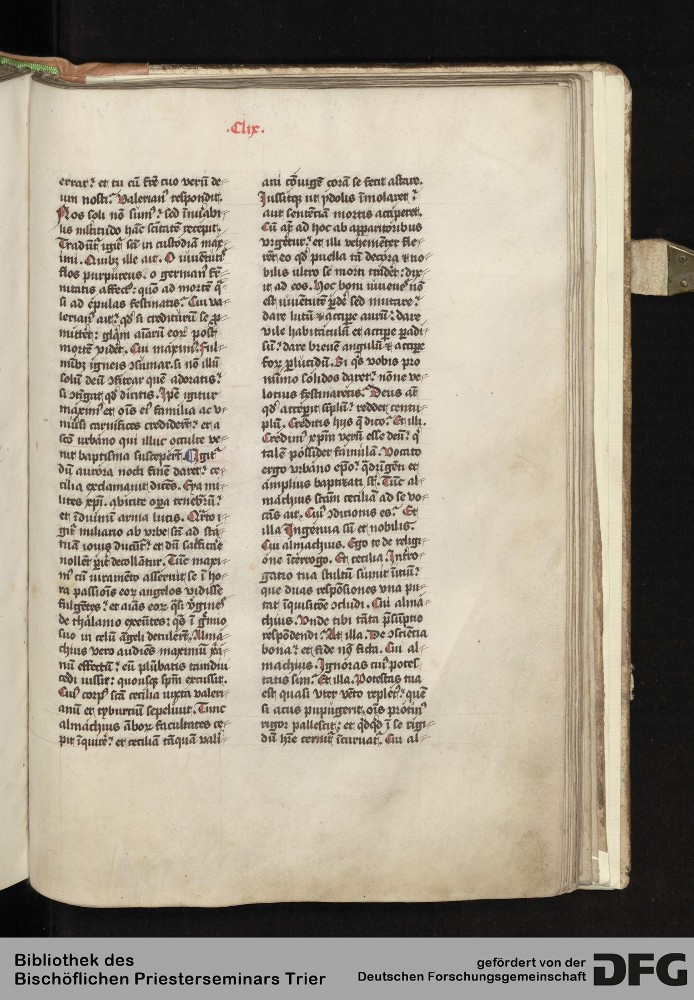 .Clix.
errat᷑ et tu cū fr̄e tuo verū de-
um nosti. Valerian⁹ respondit.
Nos soli nō sum⁹ sed īnu̅abi-
lis m̅ltitudo hāc sc̄itatē recepit.
Tradūt᷑ igit᷑ sc̄i in custodiā max-
imi. Quib⁹ ille ait. O iuuētutis
flos purpure⁹. o german⁹ fr̄-
nitatis affect⁹. quo ad mortē q̄-
si ad epulas festinatis. Cui va-
lerian⁹ ait. qd̓ si creditur̄ se p̱-
mitter̄ glām aīarū eoꝝ post
mortē vider̄. Cui maxim⁹. Ful-
mīb⁹ igneis ↄsumar. si nō illū
solū deū ↄfitear quē adoratis.
si ↄtīgat qd̓ dicitis. Ip̄e igitur
maxim⁹ et oīs ei⁹ familia ac v-
niu̓si carnifices crediderūt. et a
sc̄o urbāno qui illuc occulte ve-
nit baptisma suscepert̄. Igit᷑
dū aurora nocti finē daret. ce-
cilia exclamauit dicēs. Eya mi-
lites xp̄i. abicite opa tenebrū.
et īduimī arma lucis. Qrto i-
git᷑ miliario ab vrbe sc̄i ad sta-
tuā iouis ducūt᷑. et dū sacͥficare
nollēt pit̓ decollāntur. Tūc maxi-
m⁹ cū iuramēto asseruit se ī ho-
ra passiōis eoꝝ angelos vidisse
fulgētes. et aīas eoꝝ qͣsi v̓gines
de thalamo exeūtes. qͣs ī gͤmio
suo in celū āgeli detulerūt. Alma-
chius vero audiēs maximū xͣia-
nū effectū. eū plūbatis tamdiu
cedi iussit. quousqꝫ spm̄ excussit.
Cui⁹ corp⁹ sc̄a cecilia iuxta valeri-
anū et tyburciū sepeliuit. Tunc
almachius āboꝝ facultates ce-
pit īquirē. et ceciliā tāquā vale-
ani cōiugē corā se fecit astare.
Iussitqꝫ ut ydolis īmolaret
aut sentētiā mortis acciperet.
Cū aūt ad hoc ab apparitoribus
vrgētur. et illi vehemēter fle-
rēt eo qd̓ puella tā decora ⁊ no-
bilis ultro se morti trader̄. dix-
it ad eos. Hoc boni iuuenes nō
est iuuētutē p̱de̓ sed mutare.
dare lutū ⁊ accipe aurū. dare
vile habitaculū et accipe p̱adi-
sū. dare breue angulū ⁊ accipe
forꝫ p̱lucidū. Si qͥs vobis pro
nūmo solidos daret. nōne ve-
lotius festinaretis. Deus aūt
qd̓ acceperit sīplū. reddet centu-
plū. Creditis hijs q̄ dico. Et illi.
Credim⁹ xp̄m verū esse deū. qͥ
talē possidet famulā. Vocato
ergo vrbano ep̄o. qͣdrigēti et
amplius baptizati sūt. Tūc al-
machius scāam ceciliā ad se vo-
cās ait. Cui⁹ ↄdicionis es. Et
illa Ingenua sū et nobilis.
Cui almachius. Ego te de religi-
one īterrogo. Et cecilia. Intro-
gatio tua stultū sumit initiū.
que duas respōsiones vna pu-
tat īquisitōe ↄcludi. Cui alma-
chius. Vnde tibi tāta p̄sūptio
respōdendi. At illa. De ↄsciētia
bona. et fide nō ficta. Cui al-
machius. Ignoras cui⁹ potes-
tatis sum. Et illa. Potestas tua
est quasi vter vēto replet⁹. quē
si acus pupūgerit. oīs protin⁹
rigor pallescit. et qͥdqͥd ī se rigi-
dū hr̄e cernit᷑ īcuruat᷑. Cui al-
Bibliothek des
Bischöflichen Priesterseminars Trier
gefördert von der
Deutschen Forschungsgemeinschaft
DFG